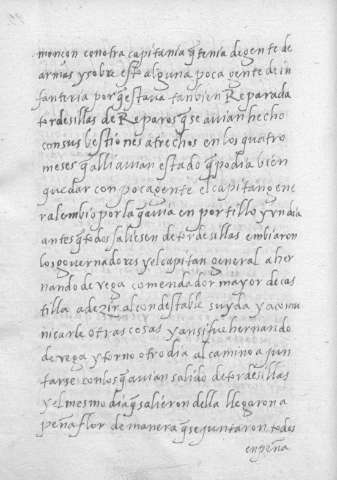 moncon con otra capitania q̃ tenia de gente de
armas y sobre esto alguna poca gente de in
fanteria por q̃ estava tanbien Reparada
tordesillas de Reparos q̃ se avian hecho
con sus bestiones a trechos en los quatro
meses q̃ alli avian estado q̃ podia bien
quedar con poca gente el capitan gene
ral embio por la q̃ avia en portillo y vn dia
antes q̃ todos saliesen de tordesillas embiaron
los governadores y el capitan general a her
nando de vega comendador mayor de cas
tilla a dezir al condestable su yda y a comu
nicarle otras cosas y ansi fue hernando
de vega y torno otro dia al camino a jun
tarse con los q̃ avian salido de tordesillas
y el mesmo dia q̃ salieron della llegaron a
peñaflor de manera q̃ se juntaron todos
en peña